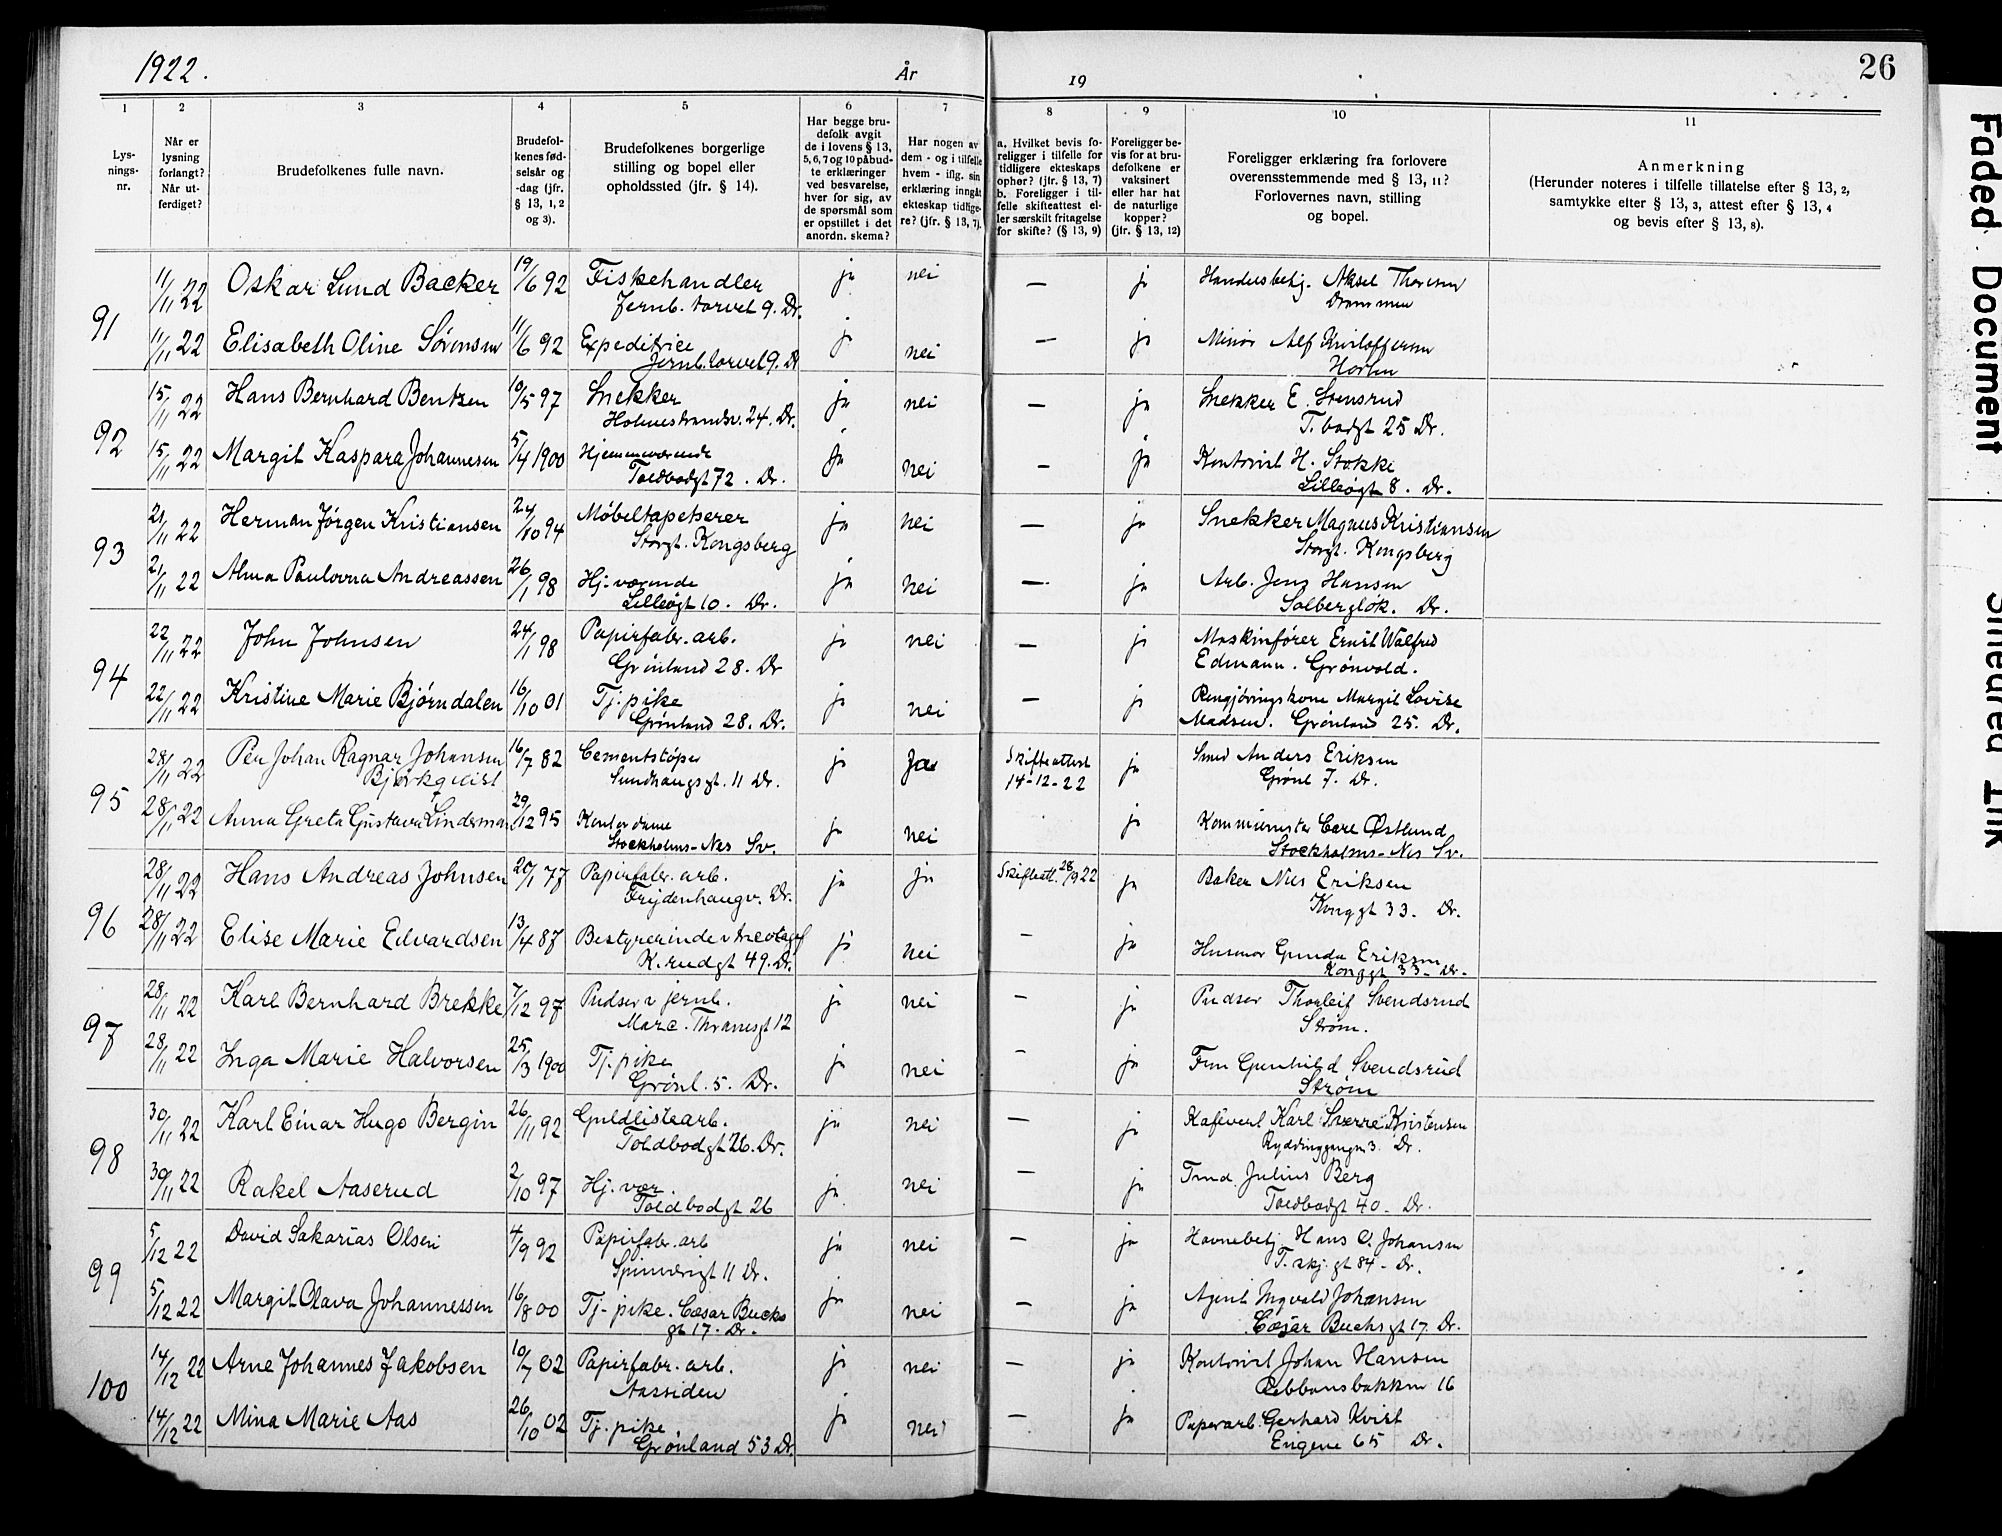 1922.
År
19
26
1
2
3
4
5
6
7
8
9
10
11
Lys-
nings-
nr.
Når er
lysning
forlangt?
Når ut-
ferdiget?
Brudefolkenes fulle navn.
Brudefol-
kenes fød-
selsår og
-dag (jfr.
§ 13, 1, 2
og 3).
Brudefolkenes borgerlige
stilling og bopel eller
opholdssted (jfr. § 14).
Har begge bru-
defolk avgit
de i lovens § 13,
5, 6, 7 og 10 påbud-
te erklæringer
ved besvarelse,
hver for sig, av
de spørsmål som
er opstillet i det
anordn. skema?
Har nogen av
dem - og i tilfelle
hvem - iflg. sin
erklæring inngåt
ekteskap tidlige-
re? (jfr. § 13, 7).
a. Hvilket bevis fo-
religger i tilfelle for
tidligere ekteskaps
ophør? (jfr. § 13, 7)
b. Foreligger i til-
felle skifteattest el-
ler særskilt fritagelse
for skifte? (§ 13, 9)
Foreligger be-
vis for at bru-
defolkene er
vaksinert
eller har hat
de naturlige
kopper?
(jfr. § 13, 12)
Foreligger erklæring fra forlovere
overensstemmende med § 13, 11?
Forlovernes navn, stilling
og bopel.
Anmerkning
(Herunder noteres i tilfelle tillatelse efter § 13, 2,
samtykke efter § 13, 3, attest efter § 13, 4
og bevis efter § 13, 8).
91
11/11 22 Oskar Lund Backer 19/6 92 Fiskehandler ja nei — ja Handelsbetj. Aksel Thoresen
Jernb. torvet 9. Dr. Drammen
11/11 22 Elisabeth Oline Sørensen 11/6 92 Expeditrice ja nei — ja Alf
Jernb. torvet 9. Dr Horten
92
15/11 22 Hans Bernhard Bentzen 10/5 97 Snekker ja nei — ja Snekker E. Stensrud
Holmestrandsv. 24. Dr. T. bodgt 25 Dr.
15/11 22 Margit Kaspara Johannesen 5/4 1900 Hjemmeværende ja nei — ja Kontorist H. Stokke
Toldbodgt 72. Dr. Lilleøgt 8. Dr.
93
21/11 22 Herman Jørgen Kristiansen 24/10 94 Møbeltapetserer ja nei — ja Snekker Magnus Kristiansen
Storgt. Kongsberg Storgt. Kongsberg
21/11 22 Alma Paulovna Andreassen 26/1 98 Hj. værende ja nei — ja Arb. Jens Hansen
Lilleøgt 10. Dr. Solbergløk. Dr.
94
22/11 22 John Johnsen 24/1 98 Papirfabr. arb. ja nei — ja Maskinfører Ernst Walfred
Grønland 28. Dr Edmann. Grønvold.
22/11 22 Kristine Marie Bjørndalen 16/10 01 Tj. pike ja nei — ja Rengjøringskone Margit Lovise
Grønland 28. Dr. Madsen. Grønland 25. Dr.
95
28/11 22 Per Johan Ragnar Johansen 16/7 82 Cementstøper ja Ja Skifteattest ja Smed Anders Eriksen
Bjørkqvist Sundhaugsgt. 11 Dr. 14-12-22 Grønl 7. Dr.
28/11 22 Anna Greta Gustava Lindeman 29/12 95 Kontordame ja nei ja Carl Østlund
Stockholms-Nes Sv. Stockholms-Nes Sv.
96
28/11 22 Hans Andreas Johnsen 20/1 77 Papirfabr. arb. ja ja Skifteatt. 28/9 22 ja Baker Nils Eriksen
Frydenhaugv. Dr. Konggt 33. Dr.
28/11 22 Elise Marie Edvardsen 13/4 87 Bestyrerinde ja nei — ja Husmor Gunda Eriksen
K. rudgt 49. Dr. Konggt 33- Dr.
97
28/11 22 Karl Bernhard Brekke 7/12 97 Pudser v jernb. ja nei — ja Pudser Thorleif Svendsrud
Marc. Thranesgt 12 Strøm.
28/11 22 Inga Marie Halvorsen 25/3 1900 Tj. pike ja nei — ja Fru Gunhild Svendsrud
Grønl. 5. Dr. Strøm
98
30/11 22 Karl Einar Hugo Bergin 26/11 92 Guldlistearb. ja nei — ja Kafévert Karl Sverre Kristensen
Toldbodgt 26. Dr. 3. Dr.
30/11 22 Rakel Aaserud 2/10 97 Hj. vær. ja nei — ja Tmd. Julius Berg
Toldbodgt 26 Toldbodgt 40- Dr.
99
5/12 22 David Sakarias Olsen 4/9 92 Papirfabr. arb ja nei — ja Havnebetj. Hans O. Johansen
Spinnerigt 11 Dr. T. skj. gt 84- Dr.
5/12 22 Margit Olava Johannessen 16/8 00 Tj- pike. Cæsar Bucks ja nei — ja Agent Ingvald Johansen
gt 17. Dr. Cæsar Buchsgt 17. Dr.
100
14/12 22 Arne Johannes Jakobsen 10/7 02 Papirfabr. arb. ja nei — ja Kontorist Johan Hansen
Aassiden Rebbansbakken 16
14/12 22 Mina Marie Aas 26/10 02 Tj. pike ja nei — ja Papirarb. Gerhard Kvist
Grønland 53 Dr. Engene 65 Dr.
Faded Document
Smeared Ink